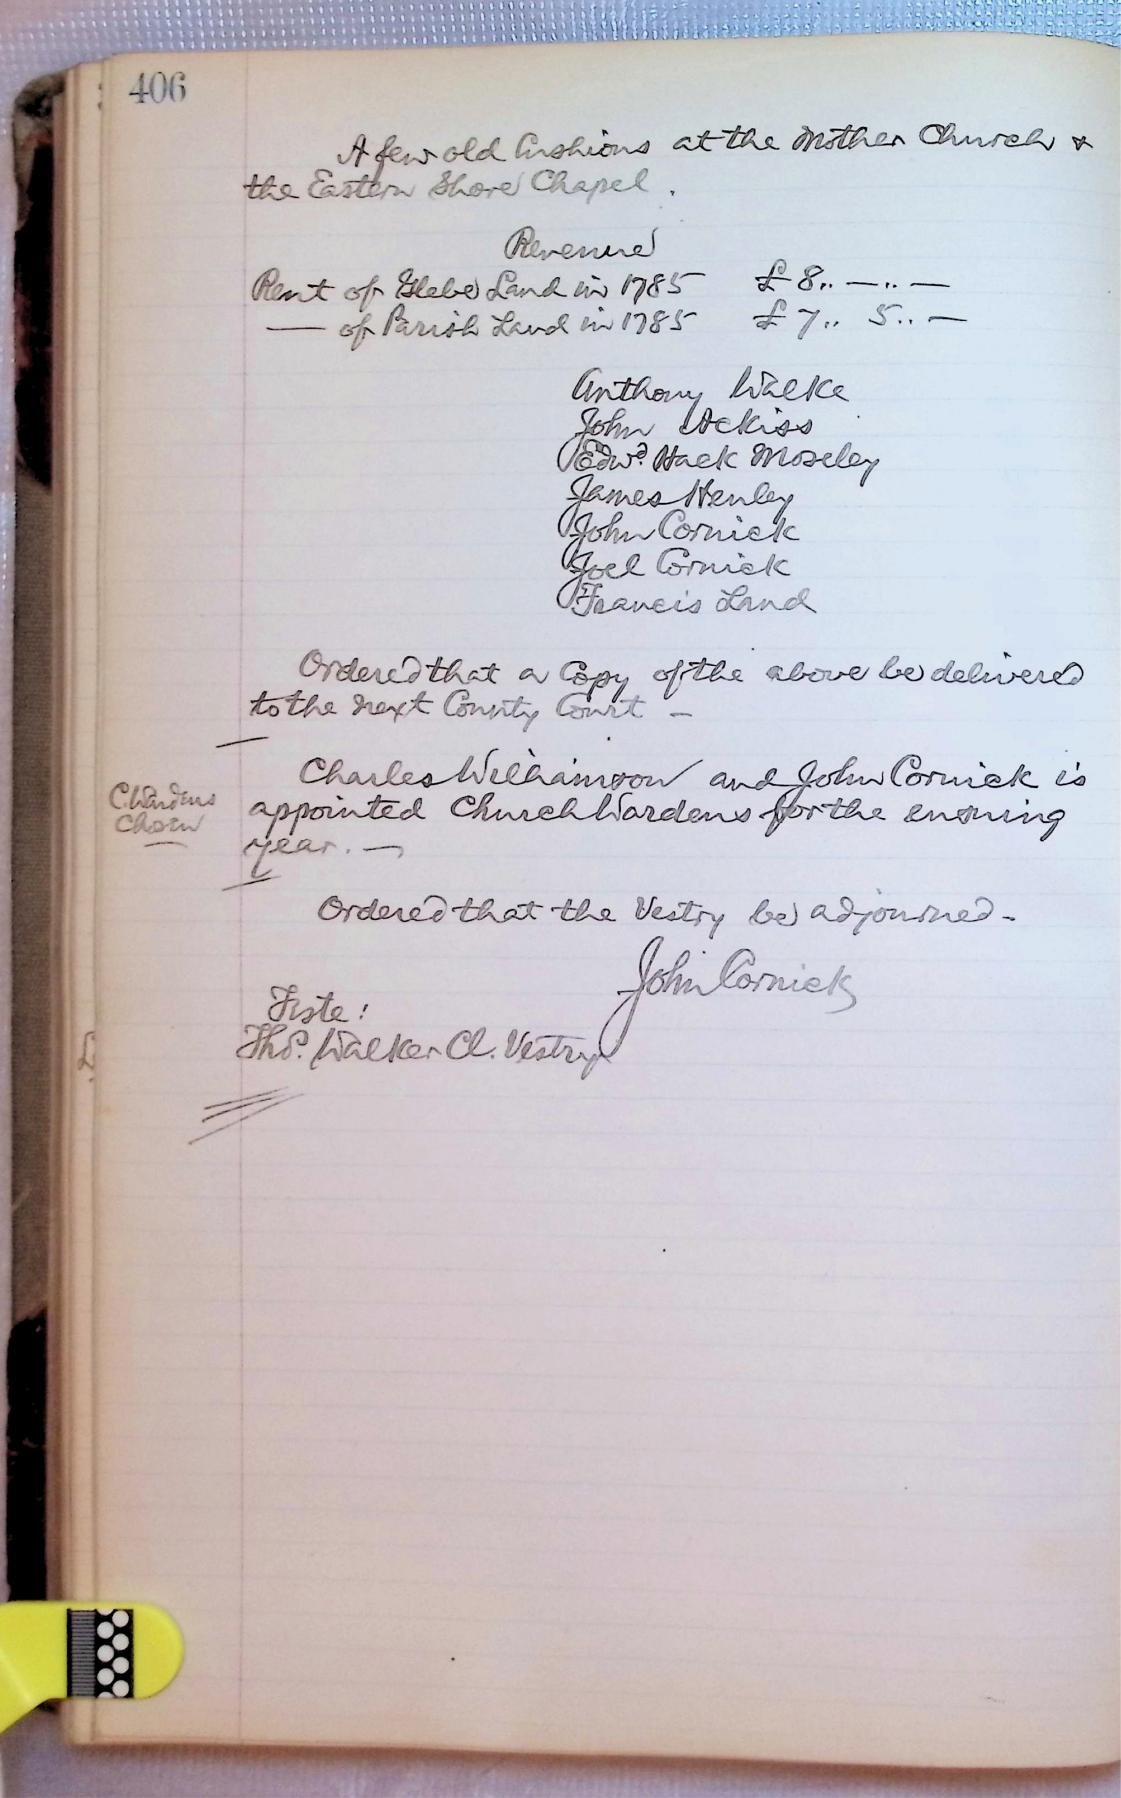 406
A few old Cushions at the Mother Church &
the Eastern Shore Chapel.
Revenue
Rent of Glebe Land in 1785 £ 8.. —.. —
— of Parish Land in 1785 £ 7.. 5.. —
Anthony Walke
John Ackiss
Edwd. Hack Moseley
James Henley
John Cornick
Joel Cornick
Francis Land
Ordered that a Copy of the above be delivered
to the next County Court —
Charles Williamson and John Cornick is
C. Wardens
Chosen
appointed Church Wardens for the ensuing
year. —
Ordered that the Vestry be adjourned -
John Cornick
Teste:
Thos. Walker Cl. Vestry